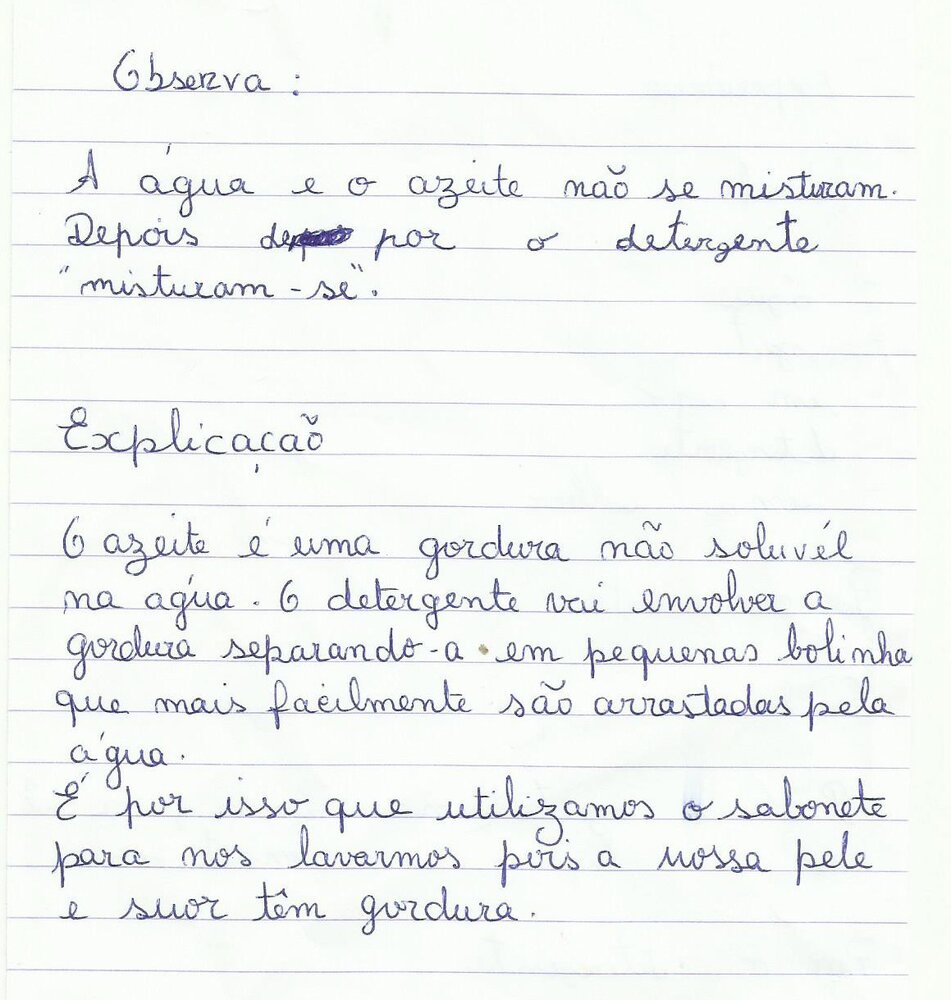 Observa :
A água e o azeite não se misturam.
Depois por o detergente
"misturam-se".
Explicação
O azeite é uma gordura não soluvél
na agúa. O detergente vai envolver a
gordura separando-a em pequenas bolinha
que mais facilmente são arrastadas pela
água.
É por isso que utilizamos o sabonete
para nos lavarmos pois a nossa pele
e suor têm gordura.